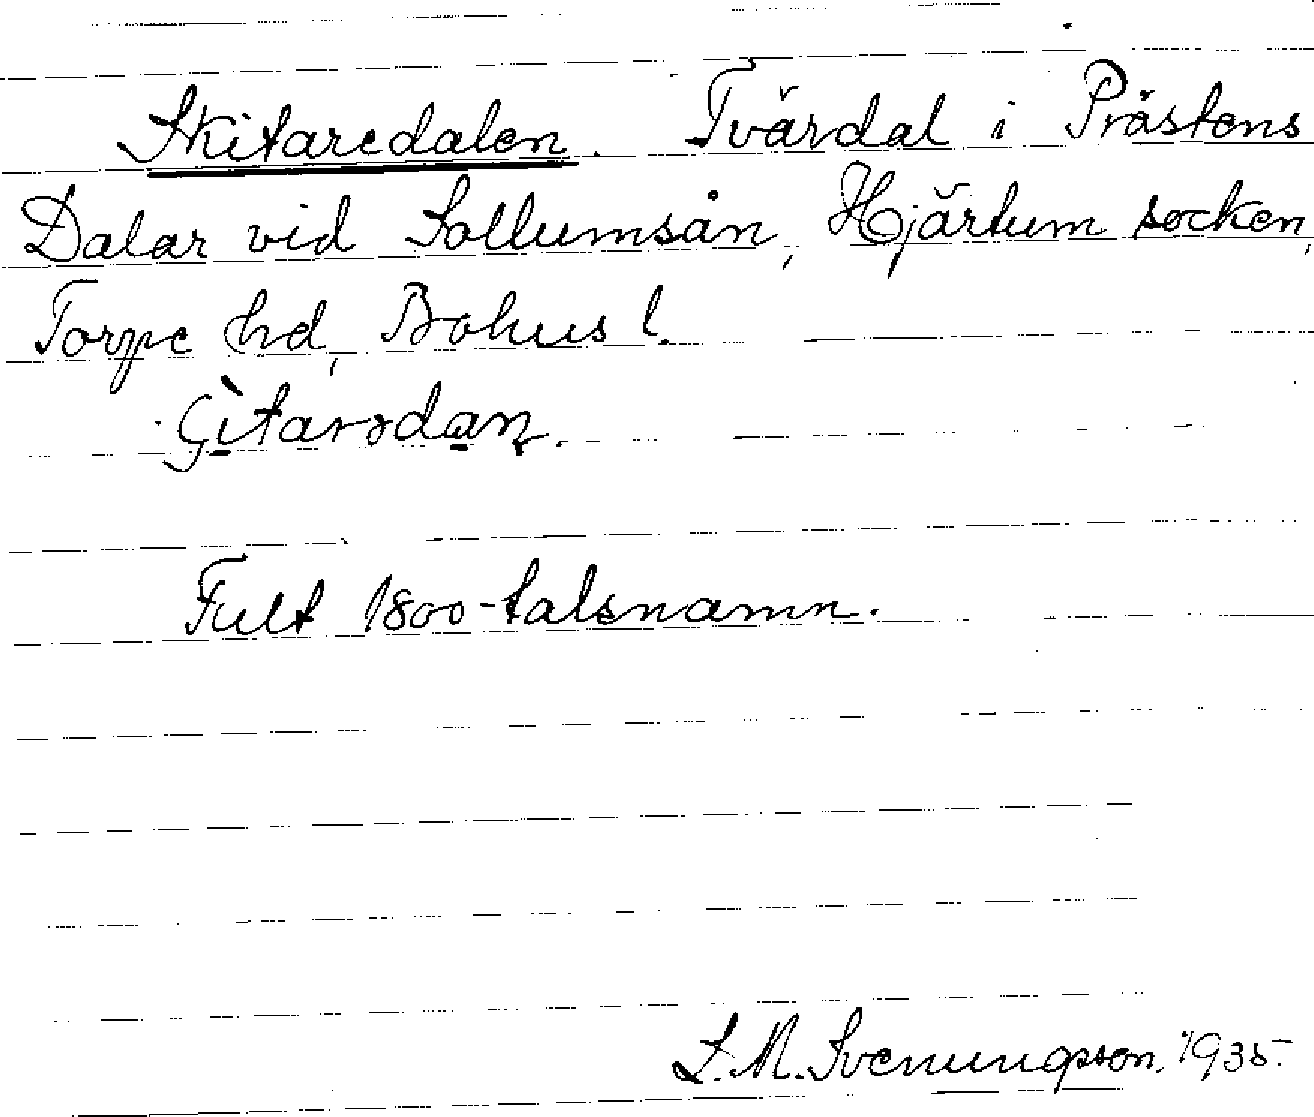 Skitaredalen. Tvärdal i Prästens
Dalar vid Sollumsån, Hjärtum socken,
Torpe hd, Bohus l.
Fult 1800-talsnamn.
S. M. Svenungsson. 1935.